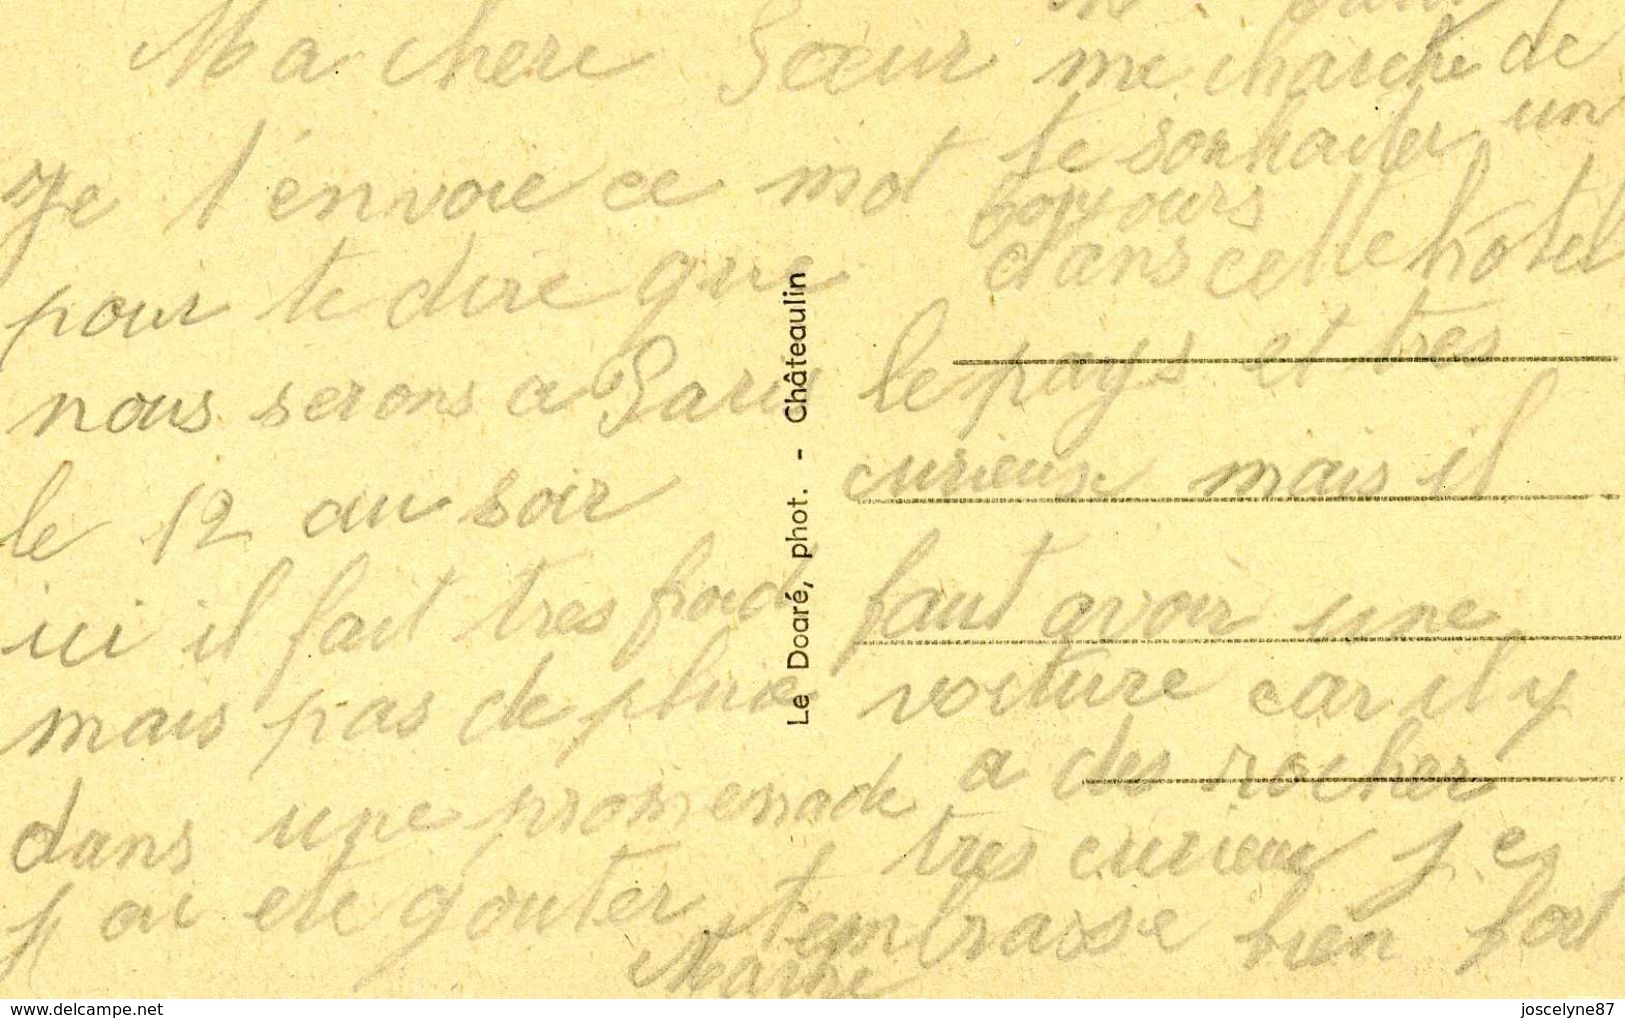 Ma chere Soeur
Je t'envoie ce mot
pour te dire que
nous serons a Paris
le 12 au soir
ici il fait tres froid
mais pas de pluie
dans une promenade
j ai ete gouter
me charche de
te souhaiter un
toujours
dans cette hotel
le pays et tres
curieux mais il
faut avoir une
voiture car il y
a des rocher
tres curieux je
t'embrasse bien fort
Marthe
Le Doaré, phot. - Châteaulin
www.delcampe.net
joscelyne87